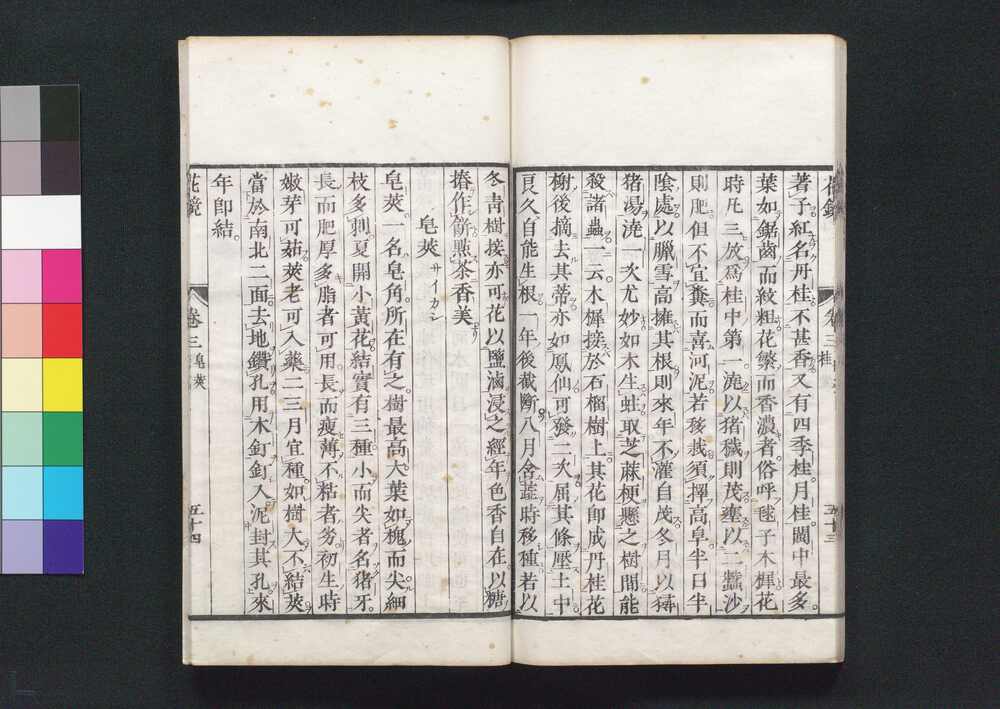 著子紅名丹桂不甚香又有四季桂月桂閩中最多
葉如鋸齒而紋粗花繁而香濃者俗呼毬子木樨花
時凡三放爲桂中第一澆以猪穢則茂壅以蠶沙
則肥但不宜糞而喜河泥若移栽須擇高阜半日半
陰處以臘雪高擁其根則來年不灌自茂冬月以
猪湯澆一次尤妙如木生蛀取芝蔴梗懸之樹間能
殺諸蟲一云木樨接於石榴樹上其花卽成丹桂花
謝後摘去其蒂亦如鳳仙可發二次屈其條壓土中
良久自能生根一年後截斷八月含蕋時移種若以
冬青樹接亦可花以鹽滷浸之經年色香自在以糖
舂作餅點茶香美
皂莢 サイカシ
皂莢一名皂角所在有之樹最高大葉如槐而尖細
枝多刺夏開小黃花結實有三種小而尖者名猪牙
長而肥厚多脂者可用長而瘦薄不粘者劣初生時
嫩芽可茹莢老可入藥二三月宜種如樹大不結莢
當於南北二面去地鑽孔用木釘釘入泥封其孔來
年卽結
花鏡 卷三 桂 五十三
花鏡 卷三 皂莢 五十四